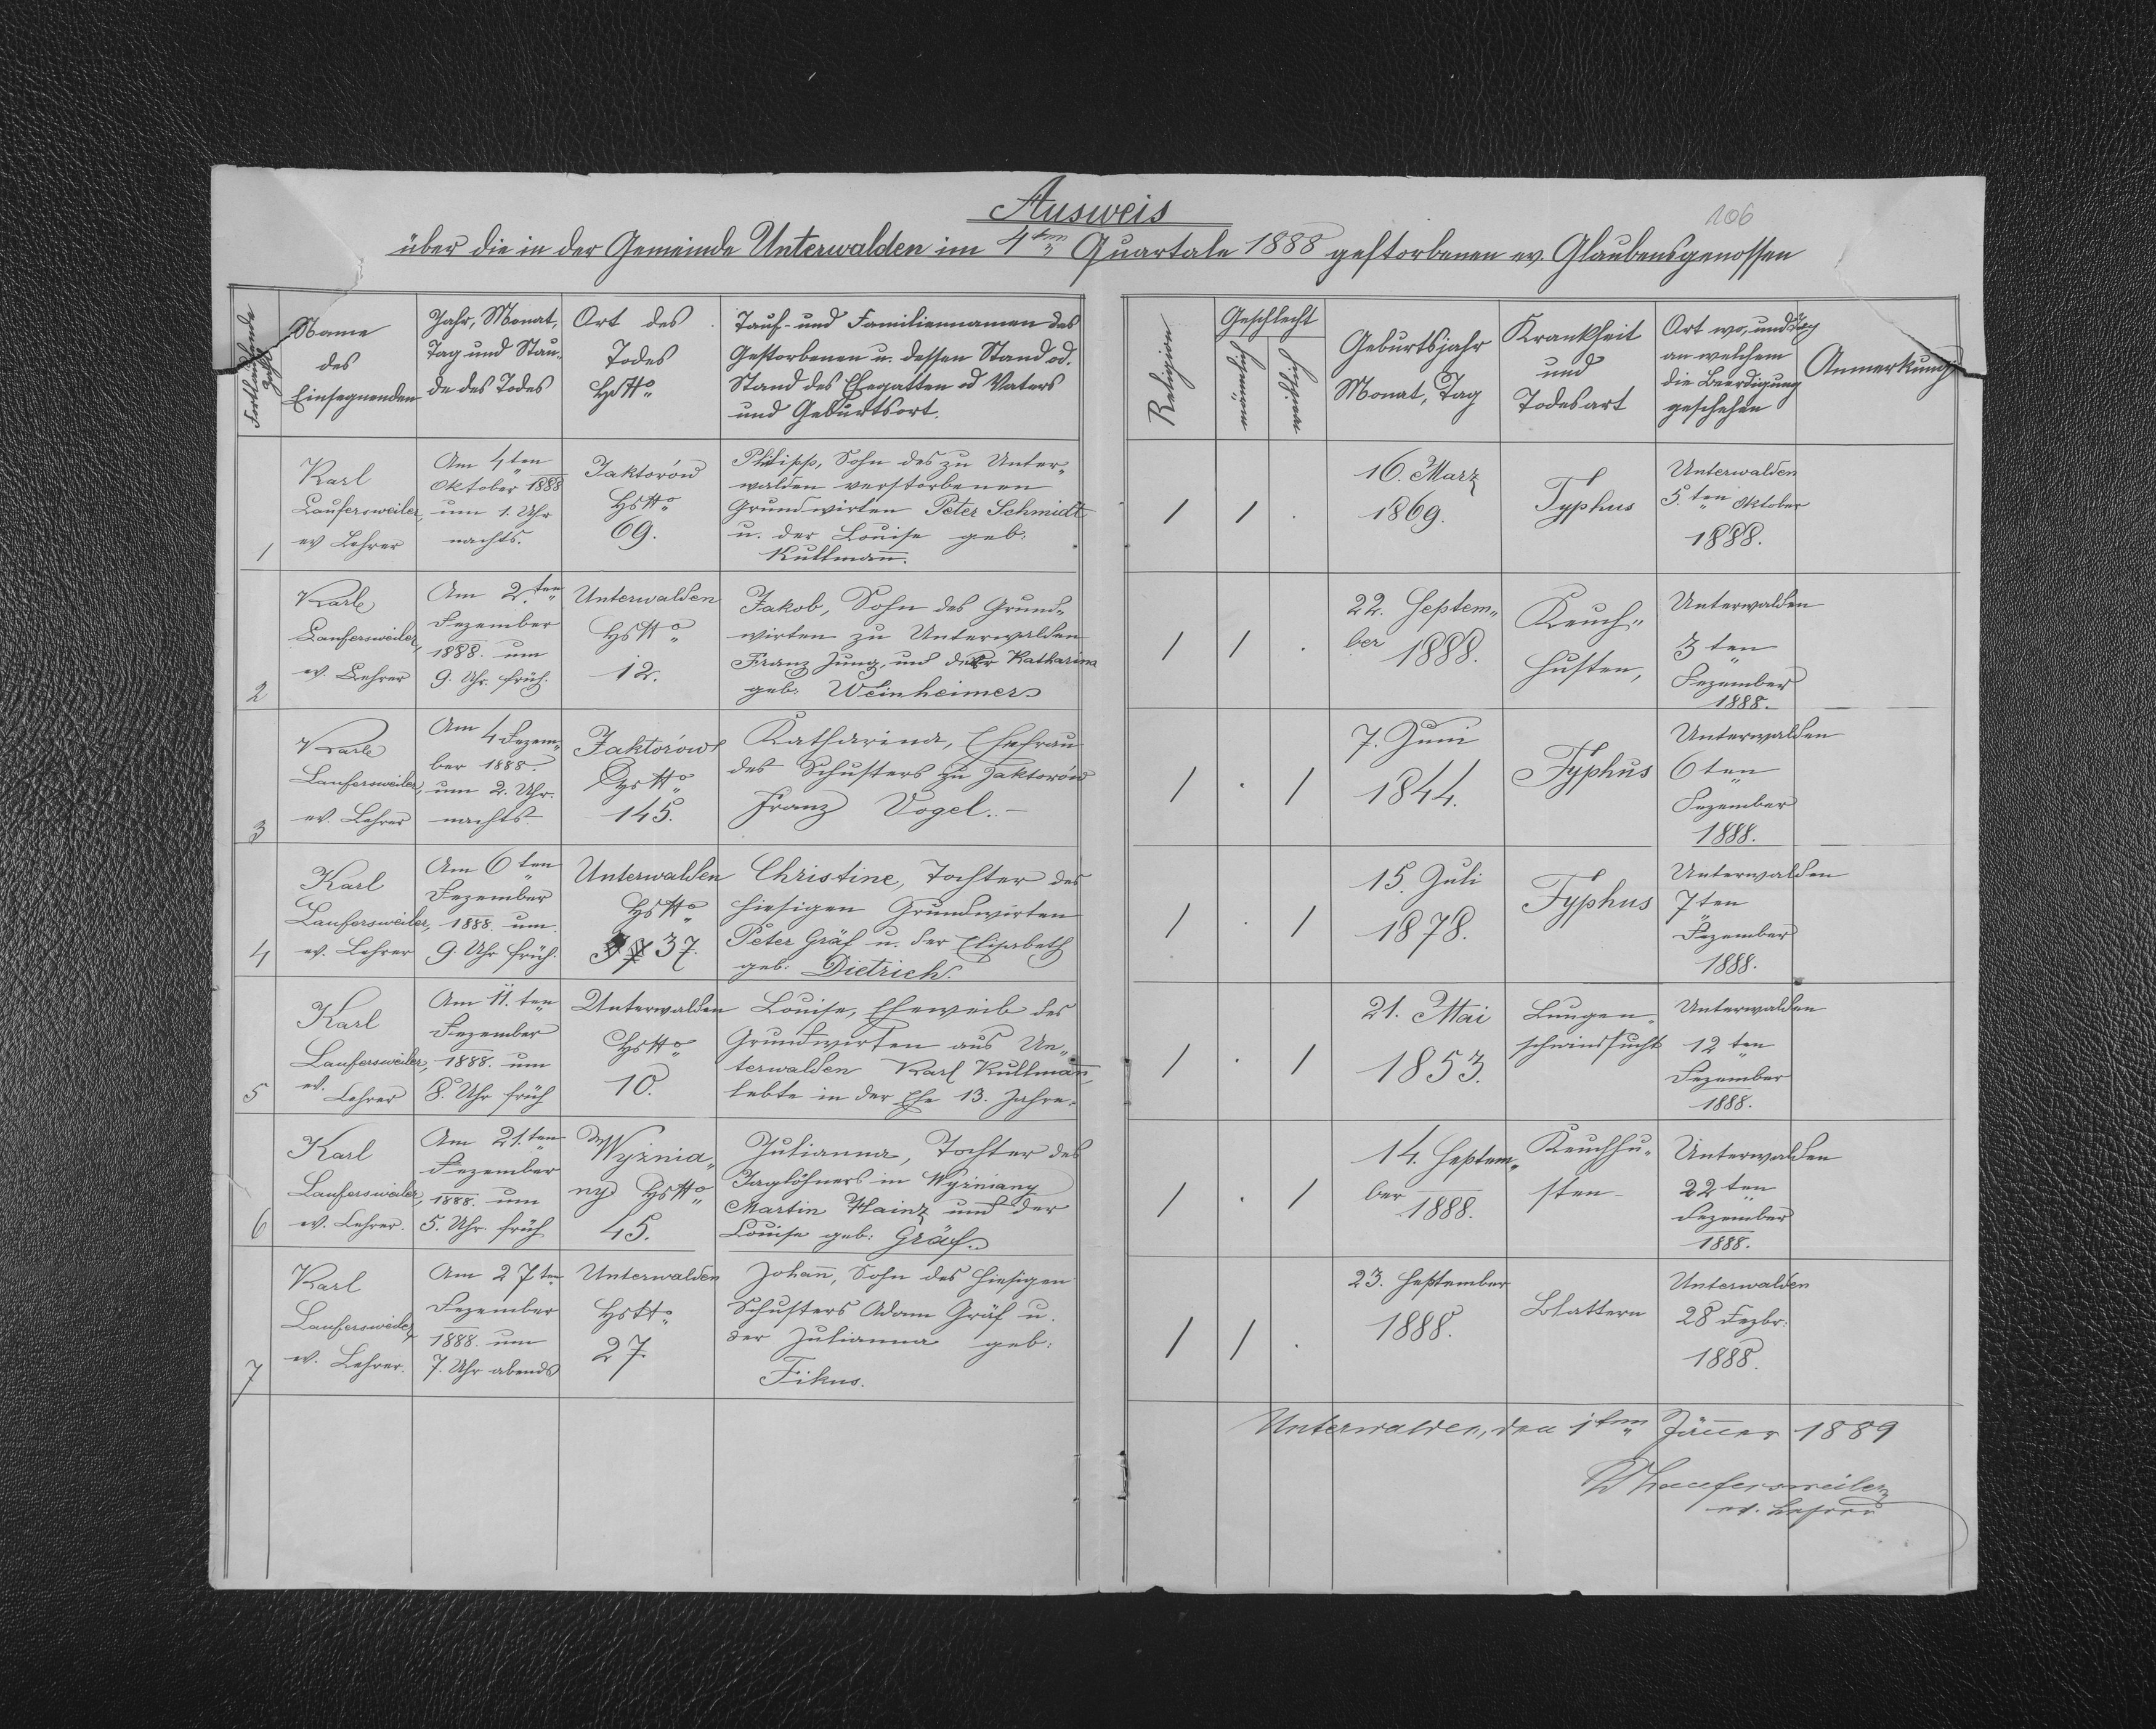 106
Ausweis
über die in der Gemeinde Unterwalden im 4ten Quartale 1888 gestorbenen ev. Glaubensgenossen
Fortlaufende Zahl
Name
des
Einsegnenden
Jahr, Monat,
Tag und Stun-
de des Todes
Ort des
Todes
HsNo
Tauf- und Familiennamen des
Gestorbenen u. dessen Stand od.
Stand des Ehegatten od Vaters
und Geburtsort.
Religion
Geschlecht
männl.
weibl.
Geburtsjahr
Monat, Tag
Krankheit
und
Todesart
Ort wo, und Tag
an welchem
die Beerdigung
geschehen
Anmerkung
1
Karl
Laufersweiler,
ev Lehrer
Am 4ten
Oktober 1888
um 1. Uhr
nachts.
Jaktorów
HsNo
69.
Philipp, Sohn des zu Unter-
walden verstorbenen
Grundwirten Peter Schmidt
u. der Louise geb:
Kullmann.
1 1 .
16. Marz
1869.
Typhus
Unterwalden
5.ten Oktober
1888.
2
Karl
Laufersweiler,
ev. Lehrer
Am 2.ten
Dezember
1888. um
9. Uhr. früh.
Unterwalden
HsNo
12.
Jakob, Sohn des Grund-
wirten zu Unterwalden
Franz Jung, und der Katharina
geb: Weinheimer
1 1 .
22. Septem-
ber 1888.
Keuch-
husten,
Unterwalden
3ten
Dezember
1888.
3
Karl
Laufersweiler,
ev. Lehrer
Am 4 Dezem-
ber 1888.
um 2. Uhr.
nachts
Jaktorów
HsNo
145.
Katharina, Ehefrau
des Schusters zu Jaktorów
Franz Vogel.-
1 . 1
7. Juni
1844.
Typhus
Unterwalden
6ten
Dezember
1888.
4
Karl
Laufersweiler,
ev. Lehrer
Am 6ten
Dezember
1888. um
9. Uhr früh.
Unterwalden
HsNo
37.
Christine, Tochter des
hiesigen Grundwirten
Peter Gräf u. der Elisabeth
geb: Dietrich.
1 . 1
15. Juli
1878.
Typhus
Unterwalden
7ten
Dezember
1888.
5
Karl
Laufersweiler,
ev. Lehrer
Am 11.ten
Dezember
1888. um
8. Uhr früh
Unterwalden
HsNo
10.
Louise, Eheweib des
Grundwirten aus Un-
terwalden Karl Kullmann,
lebte in der Ehe 13. Jahre.
1 . 1
21. Mai
1853.
Lungen-
schwindsucht
Unterwalden
12ten
Dezember
1888.
6
Karl
Laufersweiler,
ev. Lehrer.
Am 21.ten
Dezember
1888. um
5. Uhr. früh
Wyżnia-
ny HsNo
45.
Julianna, Tochter des
Taglöhners in Wyżniany
Martin Hainz und der
Louise geb: Gräf.
1 . 1
14. Septem-
ber 1888.
Keuchhu-
sten-
Unterwalden
22ten
Dezember
1888.
7
Karl
Laufersweiler,
ev. Lehrer.
Am 27ten
Dezember
1888. um
7. Uhr abends
Unterwalden
HsNo
27.
Johann, Sohn des hiesigen
Schusters Adam Gräf u.
der Julianna geb:
Fikus.
1 1 .
23. September
1888.
Blattern
Unterwalden
28 Dezbr.
1888.
Unterwalden, den 1ten Jänner 1889
Laufersweiler
ev. Lehrer